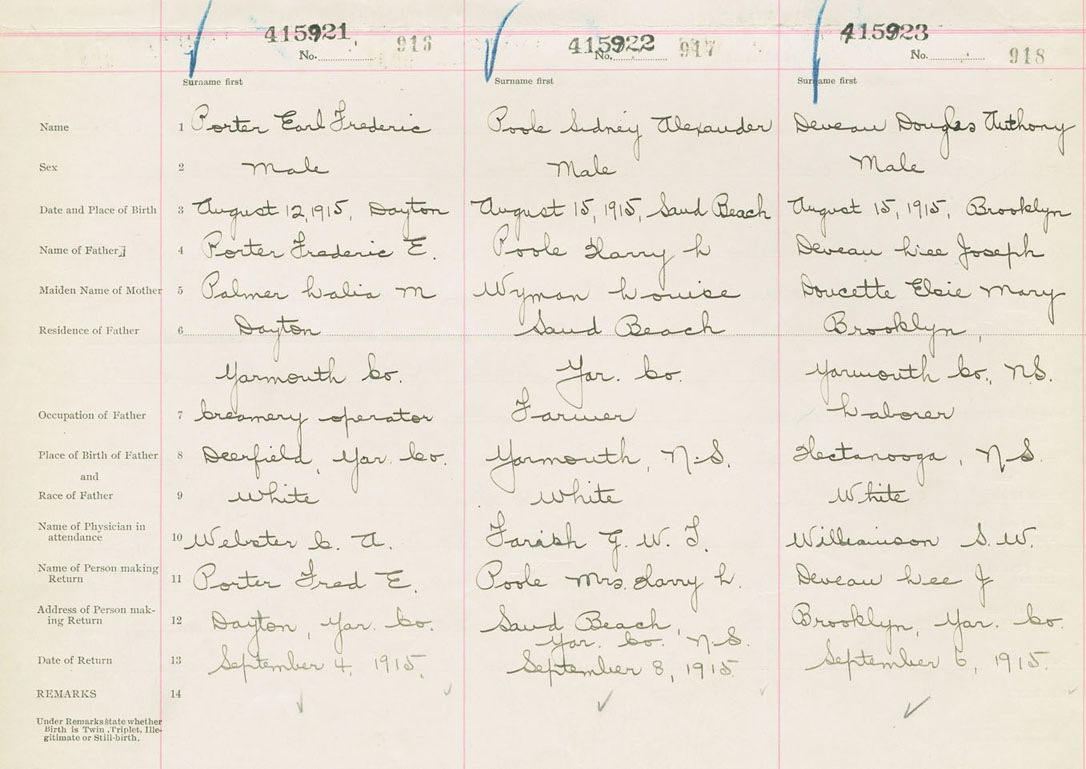 415921 916 415922 917 415923 918
No. No. No.
Surname first Surname first Surname first
Name 1 Porter Earl Frederic Poole Sidney Alexander Deveau Douglas Anthony
Sex 2 Male Male Male
Date and Place of Birth 3 August 12, 1915, Dayton August 15, 1915, Sand Beach August 15, 1915, Brooklyn
Name of Father 4 Porter Frederic E. Poole Harry L Deveau Lee Joseph
Maiden Name of Mother 5 Palmer Lalia M Wyman Louise Doucette Elsie Mary
Residence of Father 6 Dayton Sand Beach Brooklyn,
Yarmouth Co. Yar. Co. Yarmouth Co., N.S.
Occupation of Father 7 Creamery operator Farmer Laborer
Place of Birth of Father 8 Deerfield, Yar. Co. Yarmouth, N.S. Hectanooga, N.S.
and
Race of Father 9 White White White
Name of Physician in
attendance 10 Webster C. A. Farish G. W. T. Williamson S. W.
Name of Person making
Return 11 Porter Fred E. Poole Mrs. Harry L. Deveau Lee J
Address of Person mak-
ing Return 12 Dayton, Yar. Co. Sand Beach, Brooklyn, Yar. Co.
Yar. Co. N.S.
Date of Return 13 September 4, 1915, September 8, 1915 September 6, 1915.
REMARKS 14
Under Remarks state whether
Birth is Twin, Triplet, Ille-
gitimate or Still-birth.